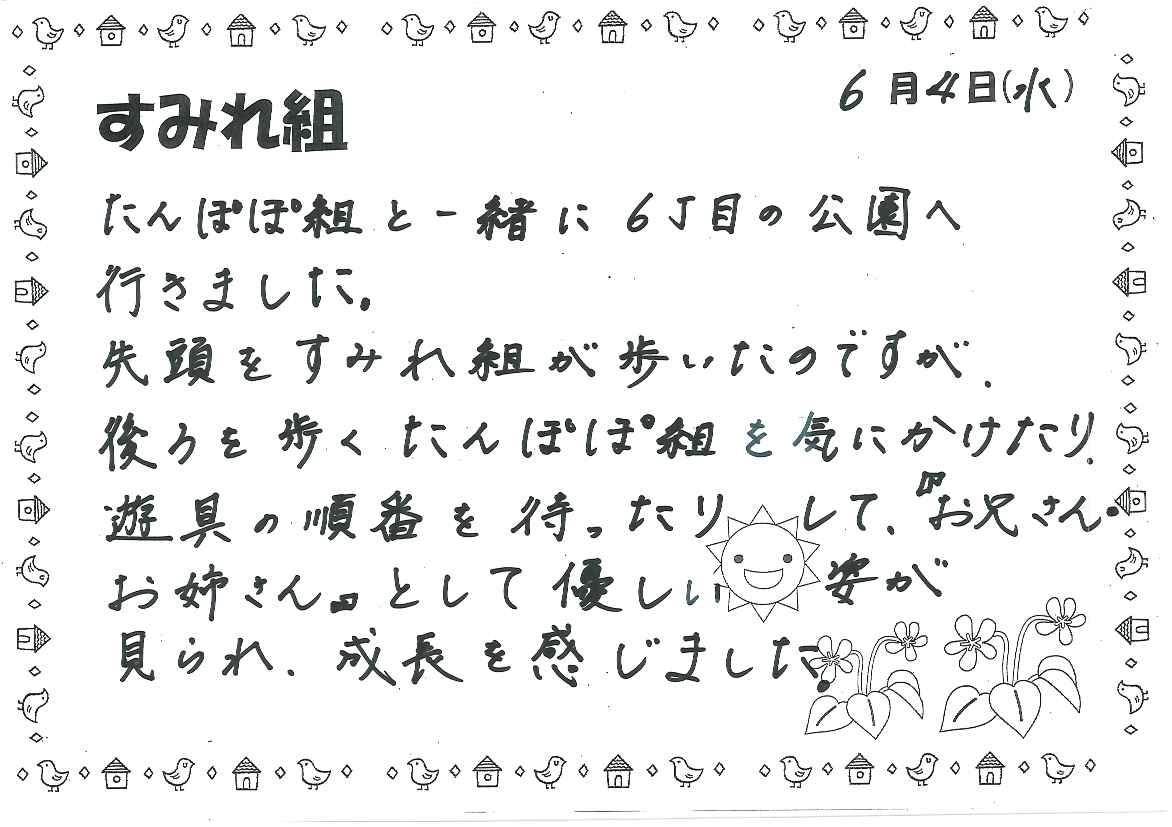 6月4日(水)
すみれ組
たんぽぽ組と一緒に6丁目の公園へ
行きました。
先頭をすみれ組が歩いたのですが、
後ろを歩くたんぽぽ組を気にかけたり、
遊具の順番を待ったりして、『お兄さん・
お姉さん』として優しい姿が
見られ、成長を感じました。